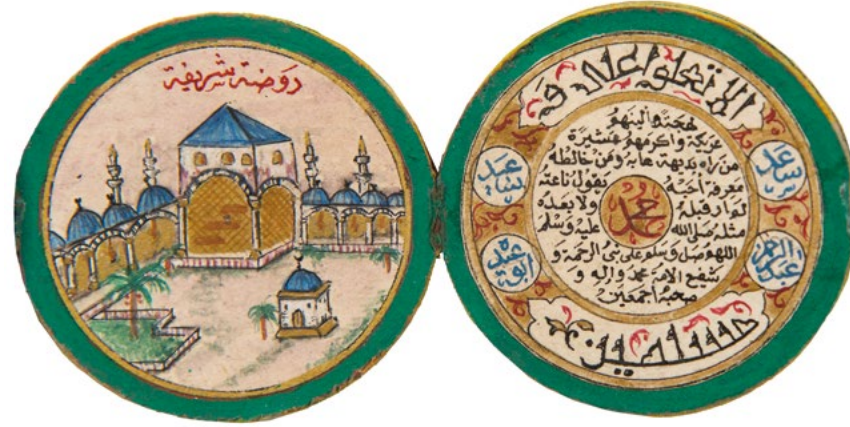 روضة شريفة
سعد
سعيد
لهجة والينهم
عريكة واكرمهم عشيرة
من راه بديهة هابه ومن خالطه
معرفة احبه يقول ناعته
لم ار قبله ولا بعده
محمد
مثله صلى الله عليه وسلم
اللهم صل وسلم على نبي الرحمة و
شفيع الامة محمد واله و
صحبه اجمعين
عبد الرحمن
ابو عبيدة